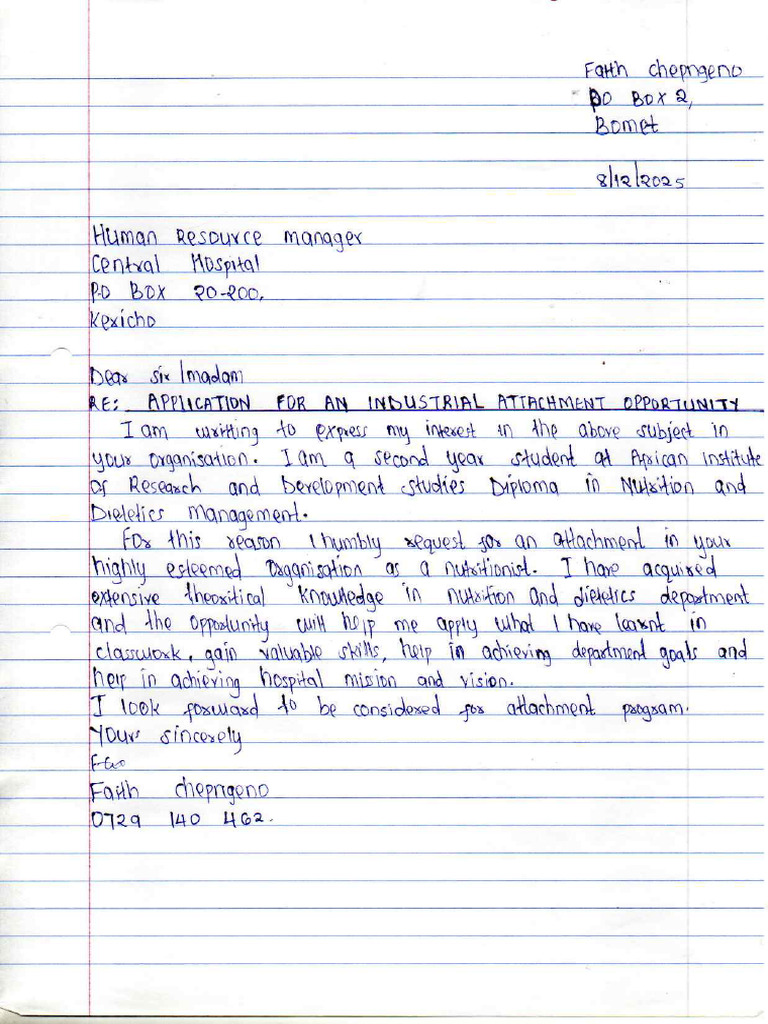 Faith chepngeno
PO BOX 2,
Bomet
8/12/2025
Human Resource manager
Central Hospital
P.O BOX 20-200,
Kericho
Dear sir /madam
RE: APPLICATION FOR AN INDUSTRIAL ATTACHMENT OPPORTUNITY
I am writting to express my interest in the above subject in
your organisation. I am a second year student at African institute
of Research and Development studies Diploma in Nutrition and
Dietetics management.
For this reason I humbly request for an attachment in your
highly esteemed organisation as a nutritionist. I have acquired
extensive theoritical knowledge in nutrition and dietetics department
and the opportunity will help me apply what I have learnt in
classwork, gain valuable skills, help in achieving department goals and
help in achieving hospital mision and vision.
I look forward to be considered for attachment program.
Yours sincerely
Faith chepngeno
0729 140 462.